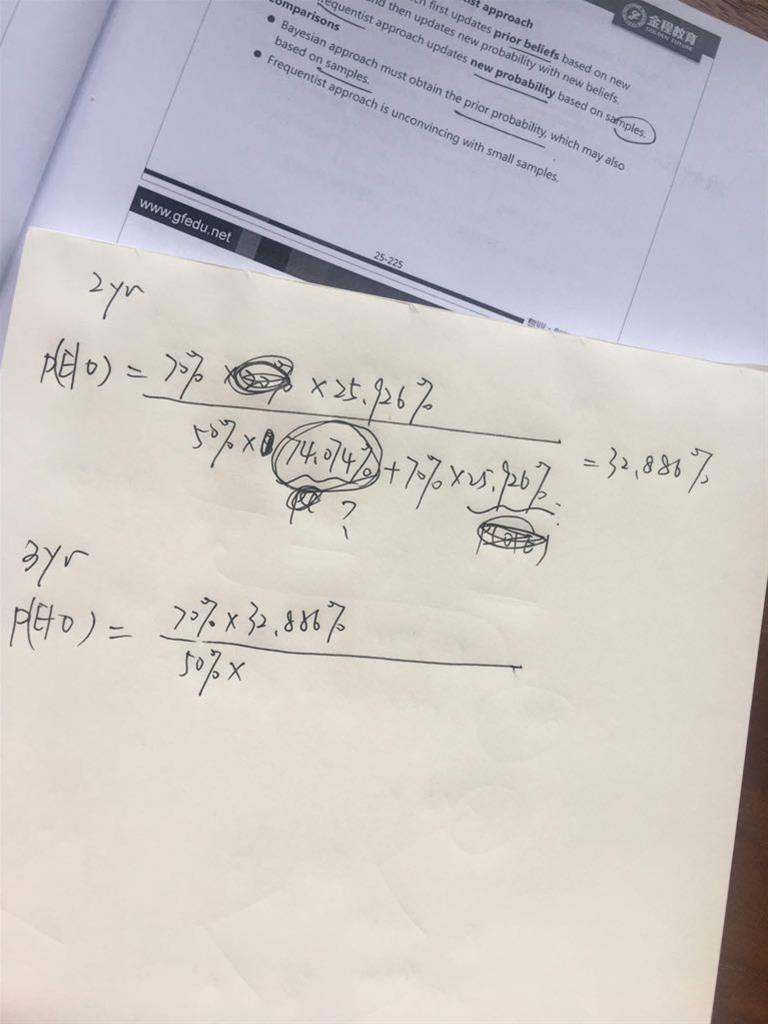 ist approach
first updates prior beliefs based on new
nd then updates new probability with new beliefs.
equentist approach updates new probability based on samples.
omparisons
• Bayesian approach must obtain the prior probability, which may also
based on samples.
• Frequentist approach is unconvincing with small samples.
金程教育
GOLDEN FUTURE
www.gfedu.net
25-225
2yr
P(E|O) = 70% × 25.926%
50% × 74.074% + 70% × 25.926% = 32.886%
?
3yr
P(E|O) = 70% × 32.886%
50% ×